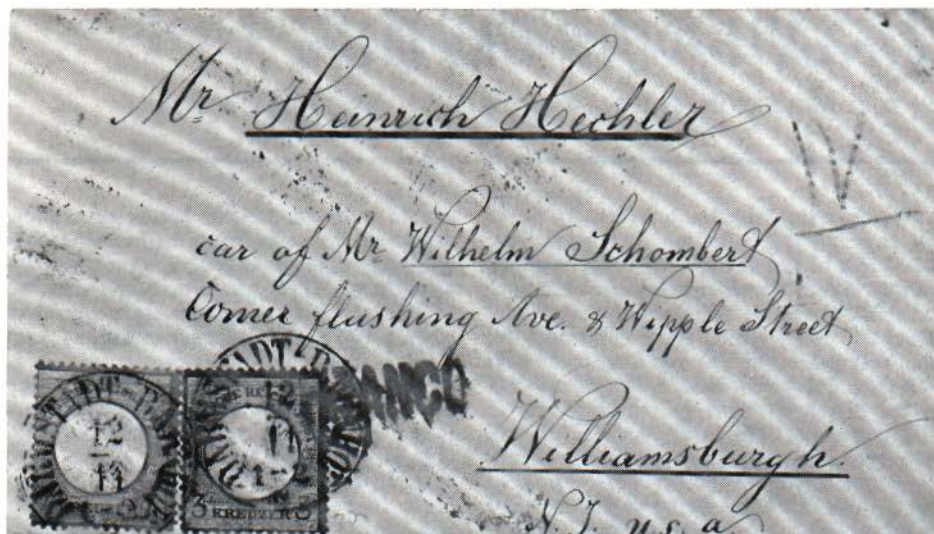 Mr Heinrich Hechler
car of Mr Wilhelm Schombert
Corner flushing Ave. & Wipple Street
FRANCO
Williamsburgh.
N.J. U.S.a.
DARMSTADT BAHNHOF
12
11
DARMSTADT BAHNHOF
12
11
3 KREUZER 3